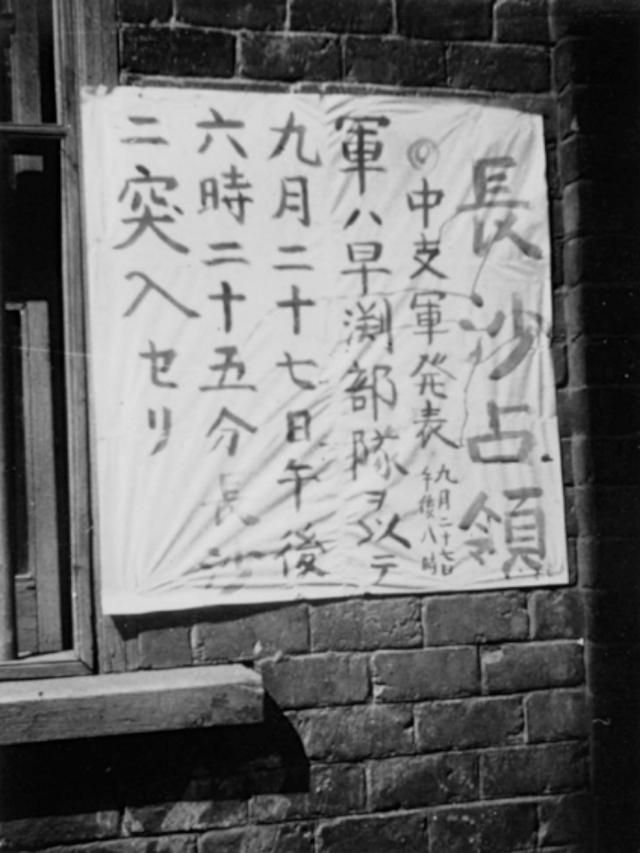 長沙占領
◎中支軍発表 九月二十七日午後八時
軍ハ早渕部隊ヲ以テ
九月二十七日午後
六時二十五分長沙
ニ突入セリ